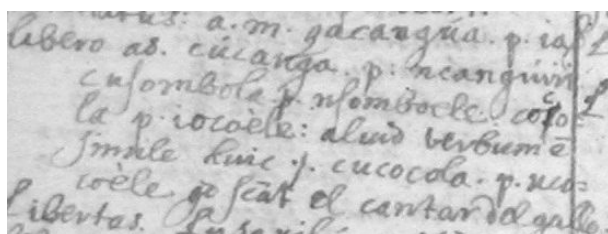 a. m. gacangúa. p. ia
libero as. cúcanga. p. ncanguiri
cusombola p. nsomboele. coco-
la p. iocoèle: aluid verbum ē
simile huic .s. cucocola. p. nco=
coèle q̄ scāt el cantar del gallo.
Libertas.